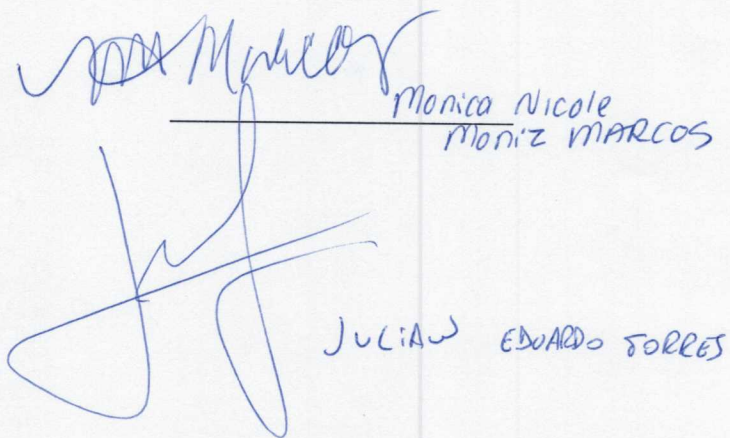 Monica Nicole
Moniz MARCOS
JULIAN EDUARDO TORRES